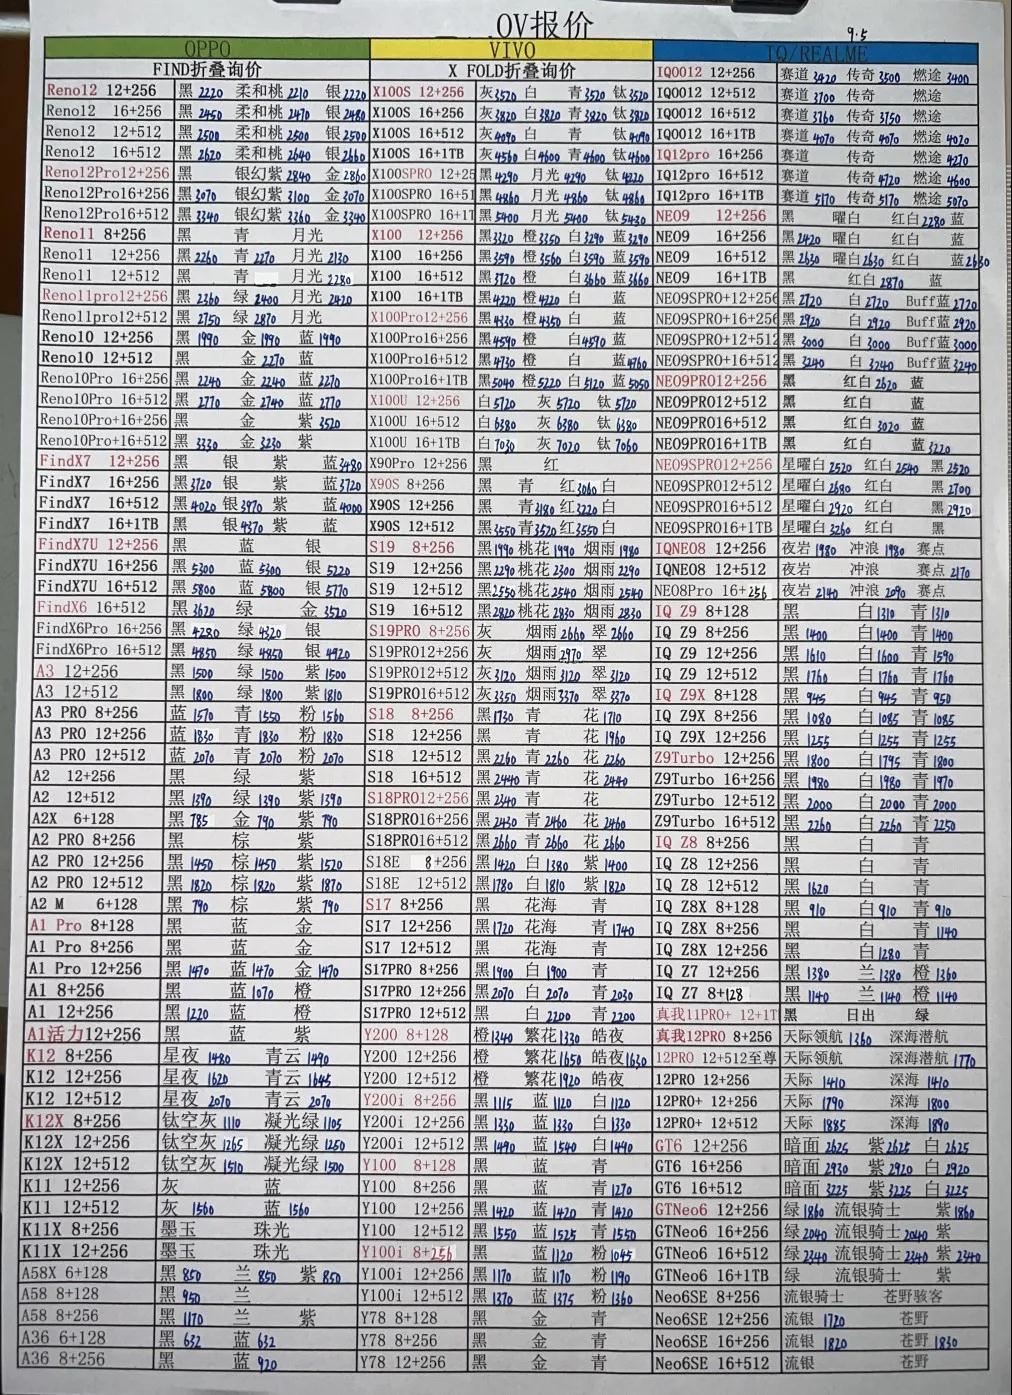 OV报价
9.5
OPPO VIVO IQ/REALME
FIND折叠询价 X FOLD折叠询价 IQOO12 12+256 赛道 3420 传奇 3500 燃途 3400
Reno12 12+256 黑 2220 柔和桃 2210 银 2220 X100S 12+256 灰 3520 白 青 3520 钛 3520 IQOO12 12+512 赛道 3700 传奇 燃途
Reno12 16+256 黑 2450 柔和桃 2470 银 2480 X100S 16+256 灰 3820 白 3820 青 3820 钛 3820 IQOO12 16+512 赛道 3760 传奇 3750 燃途
Reno12 12+512 黑 2500 柔和桃 2500 银 2500 X100S 16+512 灰 4090 白 青 钛 4090 IQOO12 16+1TB 赛道 4070 传奇 4070 燃途 4020
Reno12 16+512 黑 2620 柔和桃 2640 银 2660 X100S 16+1TB 灰 4560 白 4600 青 4600 钛 4600 IQ12pro 16+256 赛道 传奇 燃途 4270
Reno12Pro12+256 黑 银幻紫 2840 金 2860 X100SPRO 12+25 黑 4290 月光 4290 钛 4220 IQ12pro 16+512 赛道 传奇 4720 燃途 4600
Reno12Pro16+256 黑 3070 银幻紫 3100 金 3070 X100SPRO 16+51 黑 4860 月光 4860 钛 4860 IQ12pro 16+1TB 赛道 5170 传奇 5170 燃途 5070
Reno12Pro16+512 黑 3340 银幻紫 3360 金 3340 X100SPRO 16+1T 黑 5400 月光 5400 钛 5430 NEO9 12+256 黑 曜白 红白 2280 蓝
Reno11 8+256 黑 青 月光 X100 12+256 黑 3320 橙 3350 白 3290 蓝 3290 NEO9 16+256 黑 2420 曜白 红白 蓝
Reno11 12+256 黑 2260 青 2270 月光 2130 X100 16+256 黑 3590 橙 3560 白 3590 蓝 3590 NEO9 16+512 黑 2630 曜白 2630 红白 蓝 2630
Reno11 12+512 黑 青 月光 2280 X100 16+512 黑 3720 橙 白 3660 蓝 3660 NEO9 16+1TB 黑 红白 2870 蓝
Reno11pro12+256 黑 2360 绿 2400 月光 2420 X100 16+1TB 黑 4220 橙 4220 白 蓝 NEO9SPRO+12+256 黑 2720 白 2720 Buff蓝 2720
Reno11pro12+512 黑 2750 绿 2870 月光 X100Pro12+256 黑 4330 橙 4350 白 蓝 NEO9SPRO+16+256 黑 2920 白 2920 Buff蓝 2920
Reno10 12+256 黑 1990 金 1990 蓝 1990 X100Pro16+256 黑 4590 橙 白 4590 蓝 NEO9SPRO+12+512 黑 3000 白 3000 Buff蓝 3000
Reno10 12+512 黑 金 2270 蓝 X100Pro16+512 黑 4730 橙 白 蓝 4760 NEO9SPRO+16+512 黑 3240 白 3240 Buff蓝 3240
Reno10Pro 16+256 黑 2240 金 2240 蓝 2270 X100Pro16+1TB 黑 5040 橙 5220 白 5120 蓝 5050 NEO9PRO12+256 黑 红白 2620 蓝
Reno10Pro 16+512 黑 2770 金 2740 蓝 2770 X100U 12+256 白 5720 灰 5720 钛 5720 NEO9PRO12+512 黑 红白 蓝
Reno10Pro+16+256 黑 金 紫 3520 X100U 16+512 白 6380 灰 6380 钛 6380 NEO9PRO16+512 黑 红白 3020 蓝
Reno10Pro+16+512 黑 3330 金 3230 紫 X100U 16+1TB 白 7030 灰 7020 钛 7060 NEO9PRO16+1TB 黑 红白 蓝 3220
FindX7 12+256 黑 银 紫 蓝 3480 X90Pro 12+256 黑 红 NEO9SPRO12+256 星曜白 2520 红白 2540 黑 2520
FindX7 16+256 黑 3720 银 紫 蓝 3720 X90S 8+256 黑 青 红 3060 白 NEO9SPRO12+512 星曜白 2680 红白 黑 2700
FindX7 16+512 黑 4020 银 3970 紫 蓝 4000 X90S 12+256 黑 青 3180 红 3220 白 NEO9SPRO16+512 星曜白 2920 红白 黑 2920
FindX7 16+1TB 黑 银 4370 紫 蓝 X90S 12+512 黑 3550 青 3520 红 3550 白 NEO9SPRO16+1TB 星曜白 3260 红白 黑
FindX7U 12+256 黑 蓝 银 S19 8+256 黑 1990 桃花 1990 烟雨 1980 IQNEO8 12+256 夜岩 1980 冲浪 1980 赛点
FindX7U 16+256 黑 5300 蓝 5300 银 5220 S19 12+256 黑 2290 桃花 2300 烟雨 2290 IQNEO8 12+512 夜岩 冲浪 赛点 2170
FindX7U 16+512 黑 5800 蓝 5800 银 5770 S19 12+512 黑 2550 桃花 2540 烟雨 2540 NEO8Pro 16+256 夜岩 2140 冲浪 2090 赛点
FindX6 16+512 黑 3620 绿 金 3520 S19 16+512 黑 2820 桃花 2830 烟雨 2830 IQ Z9 8+128 黑 白 1310 青 1310
FindX6Pro 16+256 黑 4280 绿 4320 银 S19PRO 8+256 灰 烟雨 2660 翠 2660 IQ Z9 8+256 黑 1400 白 1400 青 1400
FindX6Pro 16+512 黑 4850 绿 4850 银 4920 S19PRO12+256 灰 烟雨 2970 翠 IQ Z9 12+256 黑 1610 白 1600 青 1590
A3 12+256 黑 1500 绿 1500 紫 1500 S19PRO12+512 灰 3120 烟雨 3120 翠 3120 IQ Z9 12+512 黑 1760 白 1760 青 1760
A3 12+512 黑 1800 绿 1800 紫 1810 S19PRO16+512 灰 3350 烟雨 3370 翠 3370 IQ Z9X 8+128 黑 945 白 945 青 950
A3 PRO 8+256 蓝 1570 青 1550 粉 1560 S18 8+256 黑 1730 青 花 1710 IQ Z9X 8+256 黑 1080 白 1085 青 1085
A3 PRO 12+256 蓝 1830 青 1830 粉 1830 S18 12+256 黑 青 花 1960 IQ Z9X 12+256 黑 1255 白 1255 青 1255
A3 PRO 12+512 蓝 2070 青 2070 粉 2070 S18 12+512 黑 2260 青 2260 花 2260 Z9Turbo 12+256 黑 1800 白 1795 青 1800
A2 12+256 黑 绿 紫 S18 16+512 黑 2440 青 花 2440 Z9Turbo 16+256 黑 1980 白 1980 青 1970
A2 12+512 黑 1390 绿 1390 紫 1390 S18PRO12+256 黑 2340 青 花 Z9Turbo 12+512 黑 2000 白 2000 青 2000
A2X 6+128 黑 785 金 790 紫 790 S18PRO16+256 黑 2430 青 2460 花 2460 Z9Turbo 16+512 黑 2260 白 2260 青 2250
A2 PRO 8+256 黑 棕 紫 S18PRO16+512 黑 2660 青 2660 花 2660 IQ Z8 8+256 黑 白 青
A2 PRO 12+256 黑 1450 棕 1450 紫 1520 S18E 8+256 黑 1420 白 1380 紫 1400 IQ Z8 12+256 黑 白 青
A2 PRO 12+512 黑 1820 棕 1820 紫 1870 S18E 12+512 黑 1780 白 1810 紫 1820 IQ Z8 12+512 黑 1620 白 青
A2 M 6+128 黑 790 棕 紫 790 S17 8+256 黑 花海 青 IQ Z8X 8+128 黑 910 白 910 青 910
A1 Pro 8+128 黑 蓝 金 S17 12+256 黑 1720 花海 青 1740 IQ Z8X 8+256 黑 白 青 1140
A1 Pro 8+256 黑 蓝 金 S17 12+512 黑 花海 青 IQ Z8X 12+256 黑 白 1280 青
A1 Pro 12+256 黑 1470 蓝 1470 金 1470 S17PRO 8+256 黑 1900 白 1900 青 IQ Z7 12+256 黑 1380 兰 1380 橙 1360
A1 8+256 黑 蓝 1070 橙 S17PRO 12+256 黑 2070 白 2070 青 2030 IQ Z7 8+128 黑 1140 兰 1140 橙 1140
A1 12+256 黑 1220 蓝 橙 S17PRO 12+512 黑 白 2200 青 2200 真我11PRO+ 12+1T 黑 日出 绿
A1活力12+256 黑 蓝 紫 Y200 8+128 橙 1340 繁花 1330 皓夜 真我12PRO 8+256 天际领航 1360 深海潜航
K12 8+256 星夜 1480 青云 1490 Y200 12+256 橙 繁花 1650 皓夜 1630 12PRO 12+512至尊 天际领航 深海潜航 1770
K12 12+256 星夜 1620 青云 1645 Y200 12+512 橙 繁花 1920 皓夜 12PRO 12+256 天际 1410 深海 1410
K12 12+512 星夜 2070 青云 2070 Y200i 8+256 黑 1115 蓝 1120 白 1120 12PRO+ 12+256 天际 1790 深海 1800
K12X 8+256 钛空灰 1110 凝光绿 1105 Y200i 12+256 黑 1330 蓝 1330 白 1330 12PRO+ 12+512 天际 1885 深海 1890
K12X 12+256 钛空灰 1265 凝光绿 1250 Y200i 12+512 黑 1490 蓝 1540 白 1490 GT6 12+256 暗面 2625 紫 2625 白 2625
K12X 12+512 钛空灰 1510 凝光绿 1500 Y100 8+128 黑 蓝 青 GT6 16+256 暗面 2930 紫 2920 白 2920
K11 12+256 灰 蓝 Y100 8+256 黑 蓝 青 1270 GT6 16+512 暗面 3225 紫 3225 白 3225
K11 12+512 灰 1560 蓝 1560 Y100 12+256 黑 1420 蓝 1420 青 1420 GTNeo6 12+256 绿 1860 流银骑士 紫 1860
K11X 8+256 墨玉 珠光 Y100 12+512 黑 1550 蓝 1525 青 1550 GTNeo6 16+256 绿 2040 流银骑士 2040 紫
K11X 12+256 墨玉 珠光 Y100i 8+256 黑 蓝 1120 粉 1045 GTNeo6 16+512 绿 2340 流银骑士 2340 紫 2340
A58X 6+128 黑 850 兰 850 紫 850 Y100i 12+256 黑 1170 蓝 1170 粉 1190 GTNeo6 16+1TB 绿 流银骑士 紫
A58 8+128 黑 950 兰 Y100i 12+512 黑 1370 蓝 1375 粉 1360 Neo6SE 8+256 流银骑士 苍野骇客
A58 8+256 黑 1170 兰 紫 Y78 8+128 黑 金 青 Neo6SE 12+256 流银 1720 苍野
A36 6+128 黑 632 蓝 632 Y78 8+256 黑 金 青 Neo6SE 16+256 流银 1820 苍野 1830
A36 8+256 黑 蓝 920 Y78 12+256 黑 金 青 Neo6SE 16+512 流银 苍野